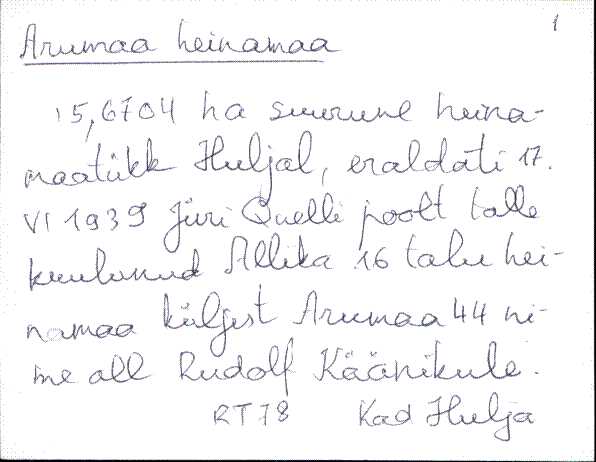 1
Arumaa heinamaa
15,6704 ha suurune heina-
maatükk Huljal, eraldati 17.
VI 1939 Jüri Quelli poolt talle
kuulunud Allika 16 talu hei-
namaa küljest Arumaa 44 ni-
me all Rudolf Käänikule.
RT 78 Kad Hulja